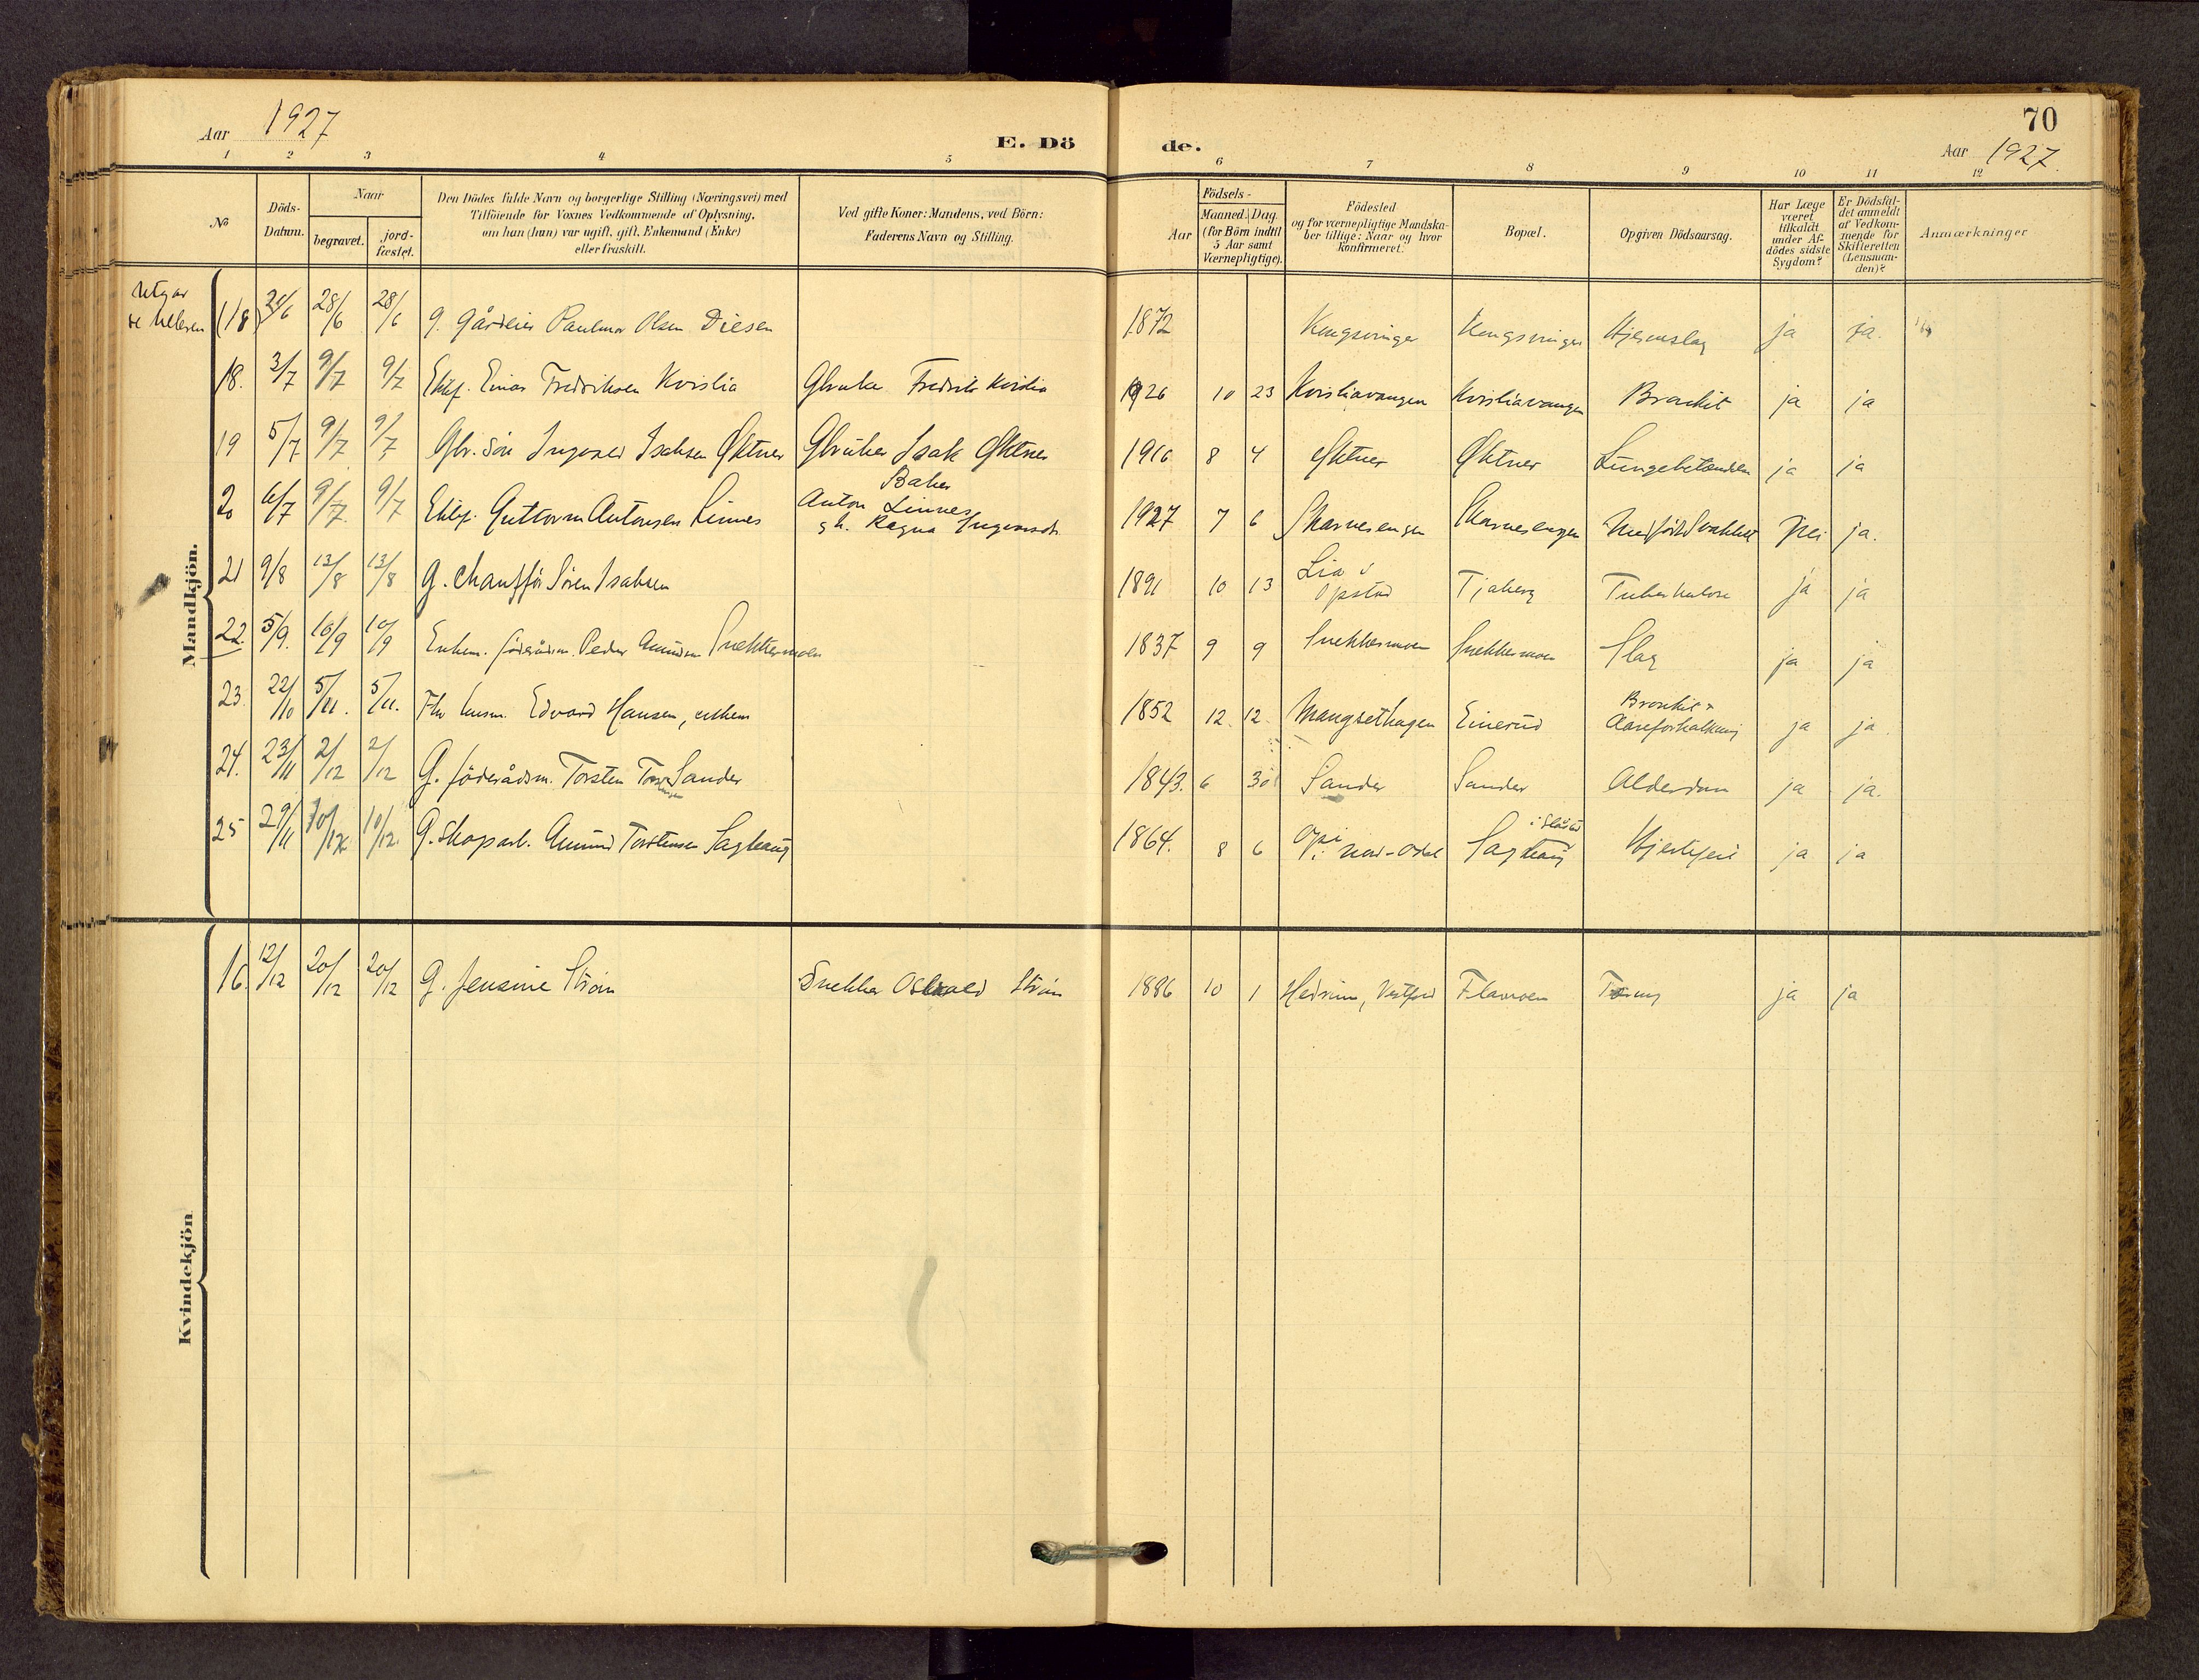 70
Aar 1927
E. Dö
de.
Aar 1927.
1 2 3 4 5 6 7 8 9 10 11 12
No
Döds-
Datum.
Naar
begravet.
jord-
fæstet.
Den Dödes fulde Navn og borgerlige Stilling (Næringsvei) med
Tilföiende for Voxnes Vedkommende af Oplysning,
om han (hun) var ugift, gift, Enkemand (Enke)
eller fraskilt.
Ved gifte Koner: Mandens, ved Börn:
Faderens Navn og Stilling.
Aar
Födsels-
Maaned. Dag.
(for Börn indtil
5 Aar samt
Værnepligtige).
Födested
og for værnepligtige Mandska-
ber tillige: Naar og hvor
Konfirmeret.
Bopæl.
Opgiven Dödsaarsag.
Har Læge
været
tilkaldt
under Af-
dödes sidste
Sygdom?
Er Dödsfal-
det anmeldt
af Vedkom-
mende for
Skifteretten
(Lensman-
den)?
Anmærkninger
Mandkjön.
Utgår
(18) 28/6 28/6 g. gårdeier Olsen Diesen 1872 Kongsvinger Kongsvinger Hjerneslag ja ja.
18. 3/7 9/7 9/7 Ektef. Einar Fredriksen Kvislia Gbruker Fredrik Kvislia 1926 10 23 Kvisliavangen Kvisliavangen Bronkit ja ja
19 5/7 9/7 9/7 Gbr. sön Ingvald Isaksen Öktner Gbruker Isak Öktner 1916 8 4 Öktner Öktner Lungebetændelse ja ja
20 6/7 9/7. 9/7 Ektef. Guttorm Antonsen Linnes Baker
Anton Linnes
g. h. Ragna Ingvarsdt. 1927 7 6 Skarnesengen Skarnesengen Medfödt svakhet nei ja.
21 9/8 13/8 13/8 G. chaufför Sören Isaksen 1891 10 13 Lia i
Opstad Tjaberg Tuberkulose ja ja
22. 5/9. 10/9 10/9 Enkem. föderådsm. Peder Amundsen Snekkermoen 1837 9 9 Snekkermoen Snekkermoen Slag ja ja
23. 22/10 5/11. 5/11. Fhv husm. Edvard Hansen, enkem 1852 12. 12. Mangsethagen Einerud Bronkit &
Aareforkalkning ja ja.
24. 23/11 2/12 2/12 G. föderådsm. Torsten Sander 1843. 6 30 Sander Sander Alderdom ja ja.
25 29/11 10/12 10/12. G. skogarb. Amund Torstensen Saghaug 1864. 8 6 Opi i Nord-Odal Saghaug Hjertefeil ja ja
Kvindekjön
16. 12/12 20/12 20/12 G. Jensine Ström Snekker Oskar Ström 1886 10 1 Hedrum, Vestfold Flaumoen ja ja